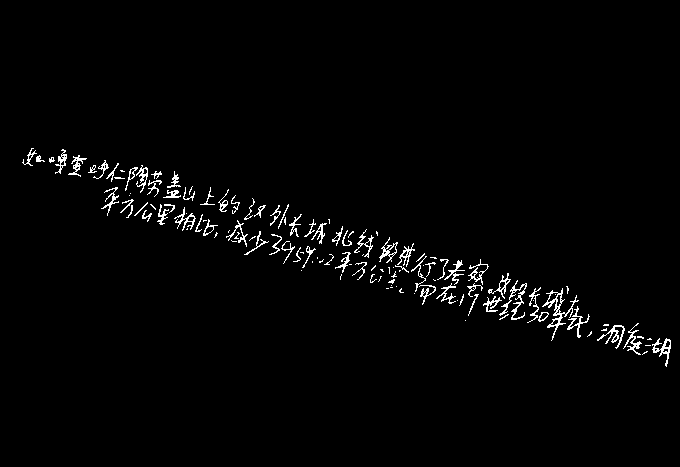 如嘎查呼仁陶劳盖山上的汉外长城北线段进行了考察。这段长城在
平方公里相比,减少3959.2平方公里。而在19世纪30年代,洞庭湖